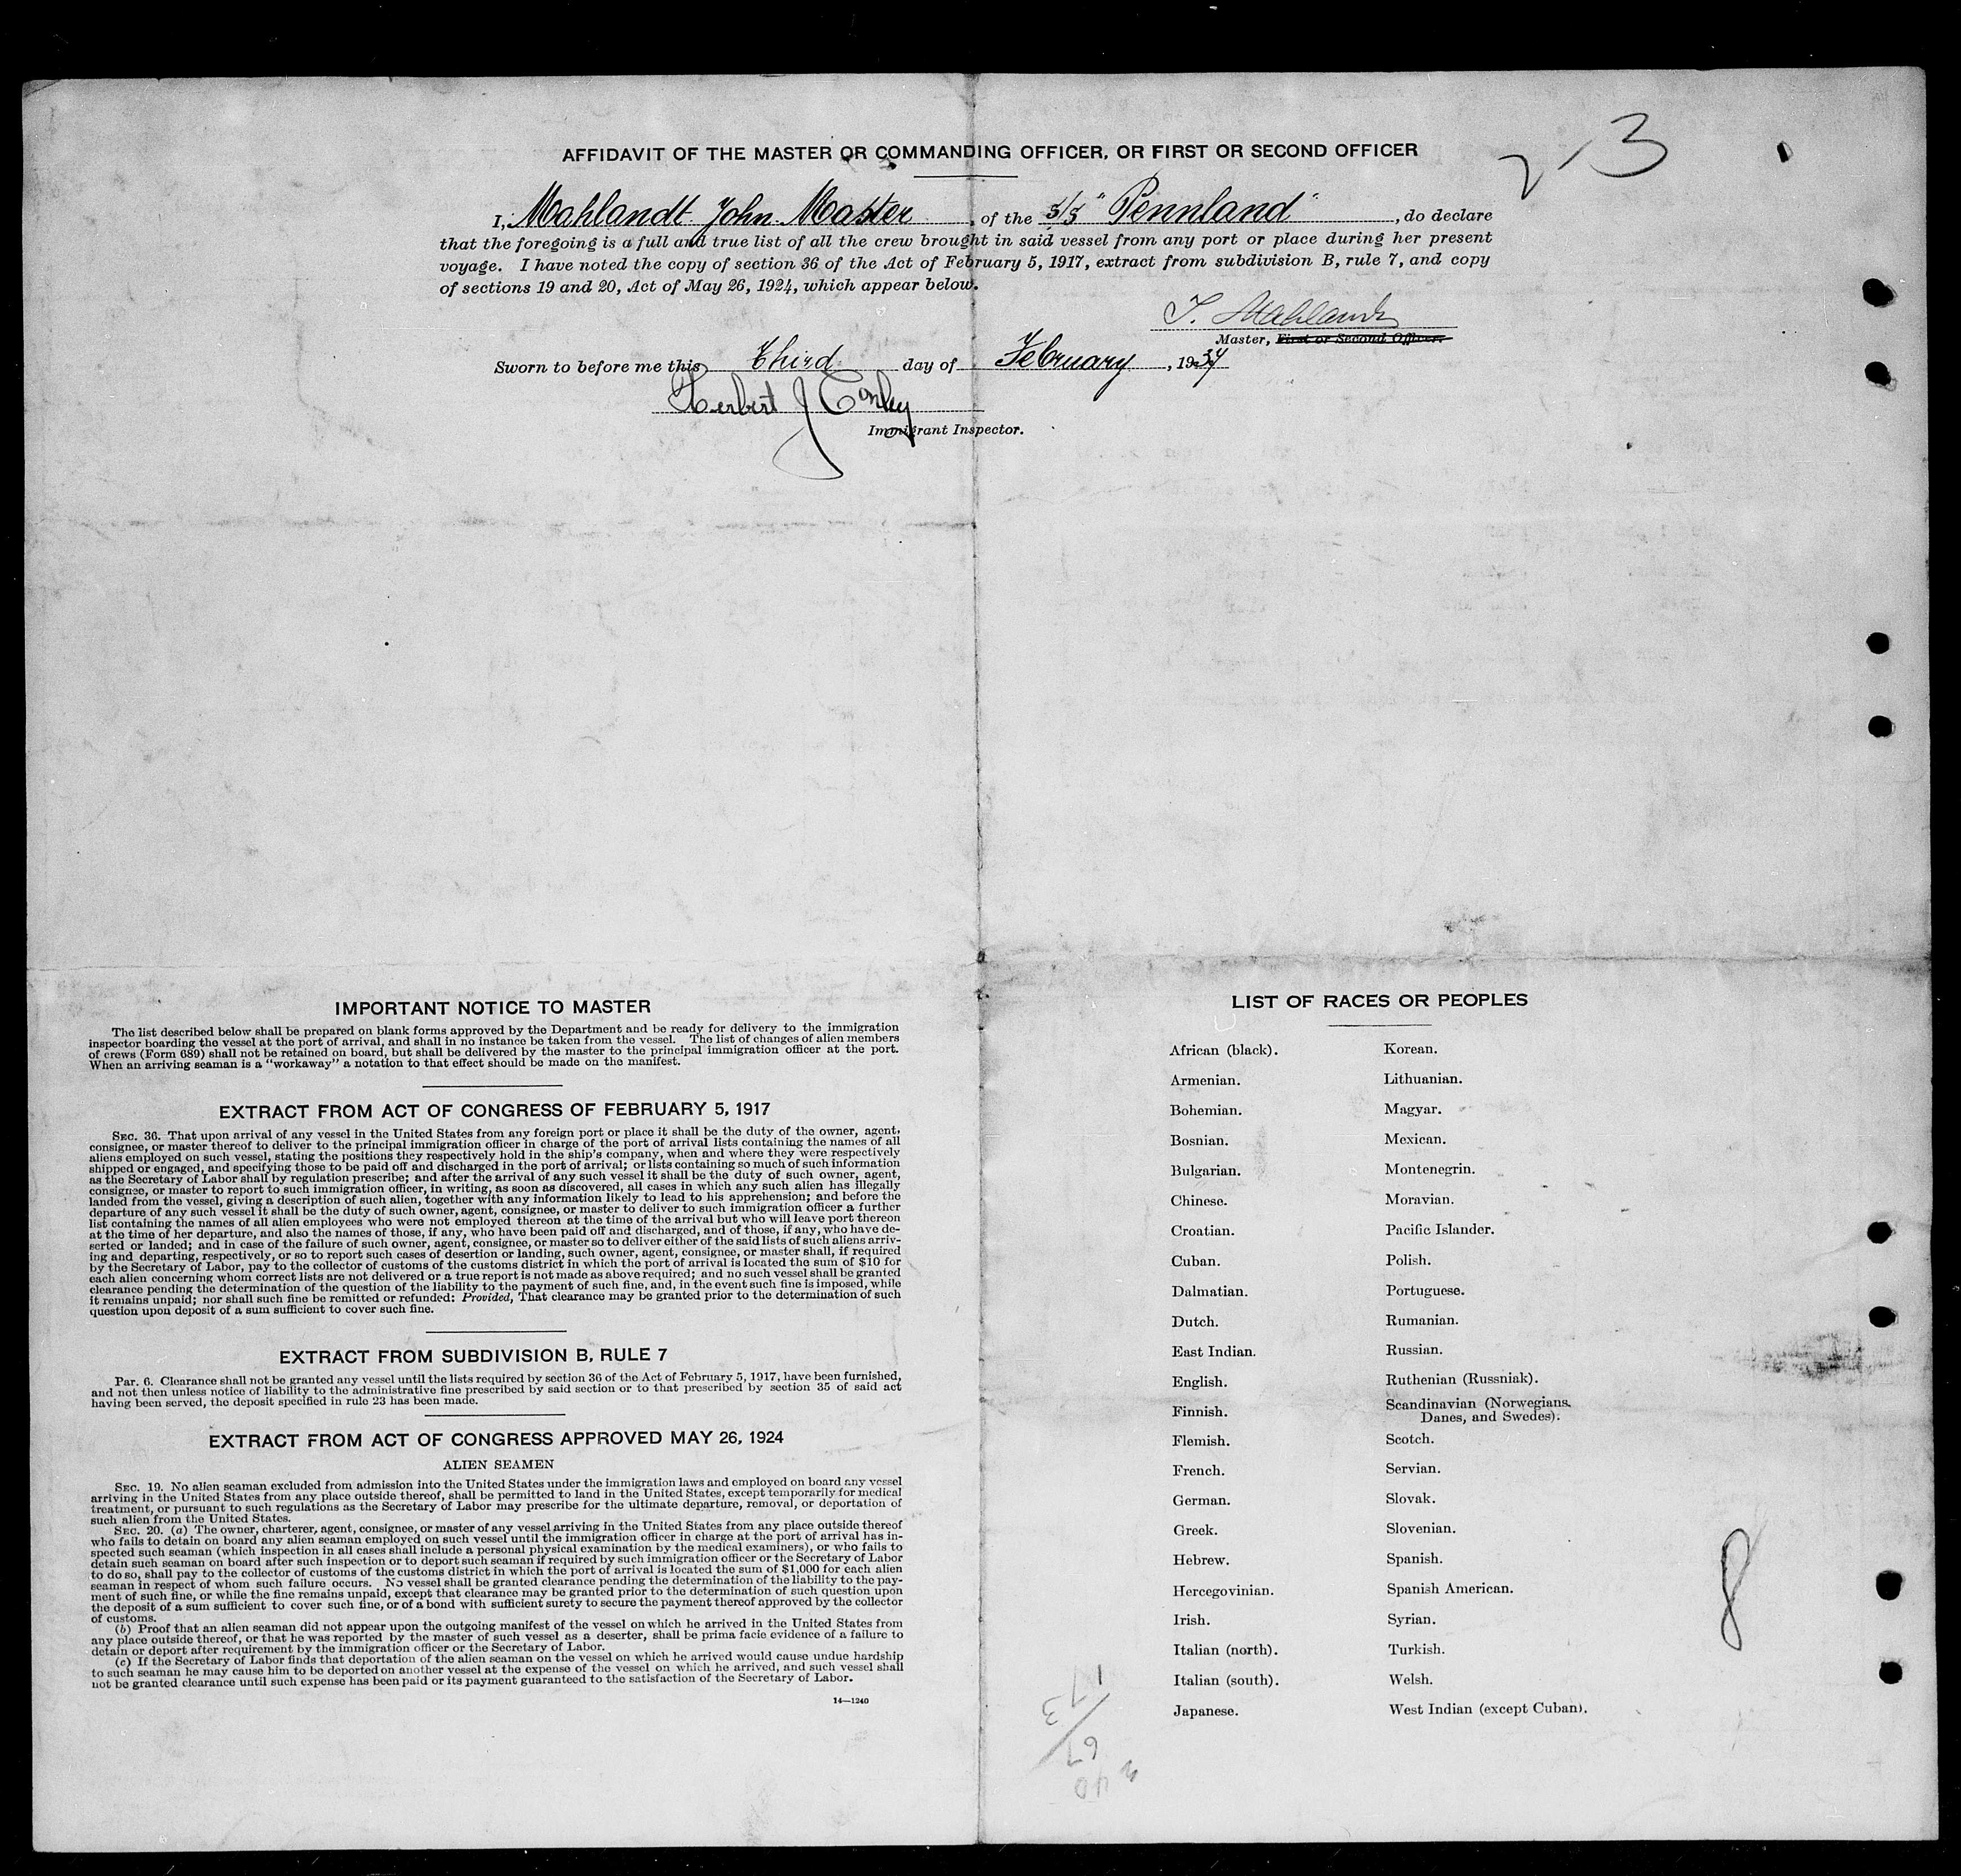 2-3
AFFIDAVIT OF THE MASTER OR COMMANDING OFFICER, OR FIRST OR SECOND OFFICER
I, Mahlandt John Master, of the S/S "Pennland", do declare
that the foregoing is a full and true list of all the crew brought in said vessel from any port or place during her present
voyage. I have noted the copy of section 36 of the Act of February 5, 1917, extract from subdivision B, rule 7, and copy
of sections 19 and 20, Act of May 26, 1924, which appear below.
J. Mahlandt
Master, First or Second Officer.
Sworn to before me this Third day of February, 1934
Herbert J Conley
Immigrant Inspector.
IMPORTANT NOTICE TO MASTER
The list described below shall be prepared on blank forms approved by the Department and be ready for delivery to the immigration
inspector boarding the vessel at the port of arrival, and shall in no instance be taken from the vessel. The list of changes of alien members
of crews (Form 689) shall not be retained on board, but shall be delivered by the master to the principal immigration officer at the port.
When an arriving seaman is a "workaway" a notation to that effect should be made on the manifest.
EXTRACT FROM ACT OF CONGRESS OF FEBRUARY 5, 1917
SEC. 36. That upon arrival of any vessel in the United States from any foreign port or place it shall be the duty of the owner, agent,
consignee, or master thereof to deliver to the principal immigration officer in charge of the port of arrival lists containing the names of all
aliens employed on such vessel, stating the positions they respectively hold in the ship's company, when and where they were respectively
shipped or engaged, and specifying those to be paid off and discharged in the port of arrival; or lists containing so much of such information
as the Secretary of Labor shall by regulation prescribe; and after the arrival of any such vessel it shall be the duty of such owner, agent,
consignee, or master to report to such immigration officer, in writing, as soon as discovered, all cases in which any such alien has illegally
landed from the vessel, giving a description of such alien, together with any information likely to lead to his apprehension; and before the
departure of any such vessel it shall be the duty of such owner, agent, consignee, or master to deliver to such immigration officer a further
list containing the names of all alien employees who were not employed thereon at the time of the arrival but who will leave port thereon
at the time of her departure, and also the names of those, if any, who have been paid off and discharged, and of those, if any, who have de-
serted or landed; and in case of the failure of such owner, agent, consignee, or master so to deliver either of the said lists of such aliens arriv-
ing and departing, respectively, or so to report such cases of desertion or landing, such owner, agent, consignee, or master shall, if required
by the Secretary of Labor, pay to the collector of customs of the customs district in which the port of arrival is located the sum of $10 for
each alien concerning whom correct lists are not delivered or a true report is not made as above required; and no such vessel shall be granted
clearance pending the determination of the question of the liability to the payment of such fine, and, in the event such fine is imposed, while
it remains unpaid; nor shall such fine be remitted or refunded: Provided, That clearance may be granted prior to the determination of such
question upon deposit of a sum sufficient to cover such fine.
EXTRACT FROM SUBDIVISION B, RULE 7
Par. 6. Clearance shall not be granted any vessel until the lists required by section 36 of the Act of February 5, 1917, have been furnished,
and not then unless notice of liability to the administrative fine prescribed by said section or to that prescribed by section 35 of said act
having been served, the deposit specified in rule 23 has been made.
EXTRACT FROM ACT OF CONGRESS APPROVED MAY 26, 1924
ALIEN SEAMEN
SEC. 19. No alien seaman excluded from admission into the United States under the immigration laws and employed on board any vessel
arriving in the United States from any place outside thereof, shall be permitted to land in the United States, except temporarily for medical
treatment, or pursuant to such regulations as the Secretary of Labor may prescribe for the ultimate departure, removal, or deportation of
such alien from the United States.
SEC. 20. (a) The owner, charterer, agent, consignee, or master of any vessel arriving in the United States from any place outside thereof
who fails to detain on board any alien seaman employed on such vessel until the immigration officer in charge at the port of arrival has in-
spected such seaman (which inspection in all cases shall include a personal physical examination by the medical examiners), or who fails to
detain such seaman on board after such inspection or to deport such seaman if required by such immigration officer or the Secretary of Labor
to do so, shall pay to the collector of customs of the customs district in which the port of arrival is located the sum of $1,000 for each alien
seaman in respect of whom such failure occurs. No vessel shall be granted clearance pending the determination of the liability to the pay-
ment of such fine, or while the fine remains unpaid, except that clearance may be granted prior to the determination of such question upon
the deposit of a sum sufficient to cover such fine, or of a bond with sufficient surety to secure the payment thereof approved by the collector
of customs.
(b) Proof that an alien seaman did not appear upon the outgoing manifest of the vessel on which he arrived in the United States from
any place outside thereof, or that he was reported by the master of such vessel as a deserter, shall be prima facie evidence of a failure to
detain or deport after requirement by the immigration officer or the Secretary of Labor.
(c) If the Secretary of Labor finds that deportation of the alien seaman on the vessel on which he arrived would cause undue hardship
to such seaman he may cause him to be deported on another vessel at the expense of the vessel on which he arrived, and such vessel shall
not be granted clearance until such expense has been paid or its payment guaranteed to the satisfaction of the Secretary of Labor.
14—1240
LIST OF RACES OR PEOPLES
African (black). Korean.
Armenian. Lithuanian.
Bohemian. Magyar.
Bosnian. Mexican.
Bulgarian. Montenegrin.
Chinese. Moravian.
Croatian. Pacific Islander.
Cuban. Polish.
Dalmatian. Portuguese.
Dutch. Rumanian.
East Indian. Russian.
English. Ruthenian (Russniak).
Finnish. Scandinavian (Norwegians,
Danes, and Swedes).
Flemish. Scotch.
French. Servian.
German. Slovak.
Greek. Slovenian.
Hebrew. Spanish.
Hercegovinian. Spanish American.
Irish. Syrian.
Italian (north). Turkish.
Italian (south). Welsh.
Japanese. West Indian (except Cuban).
8